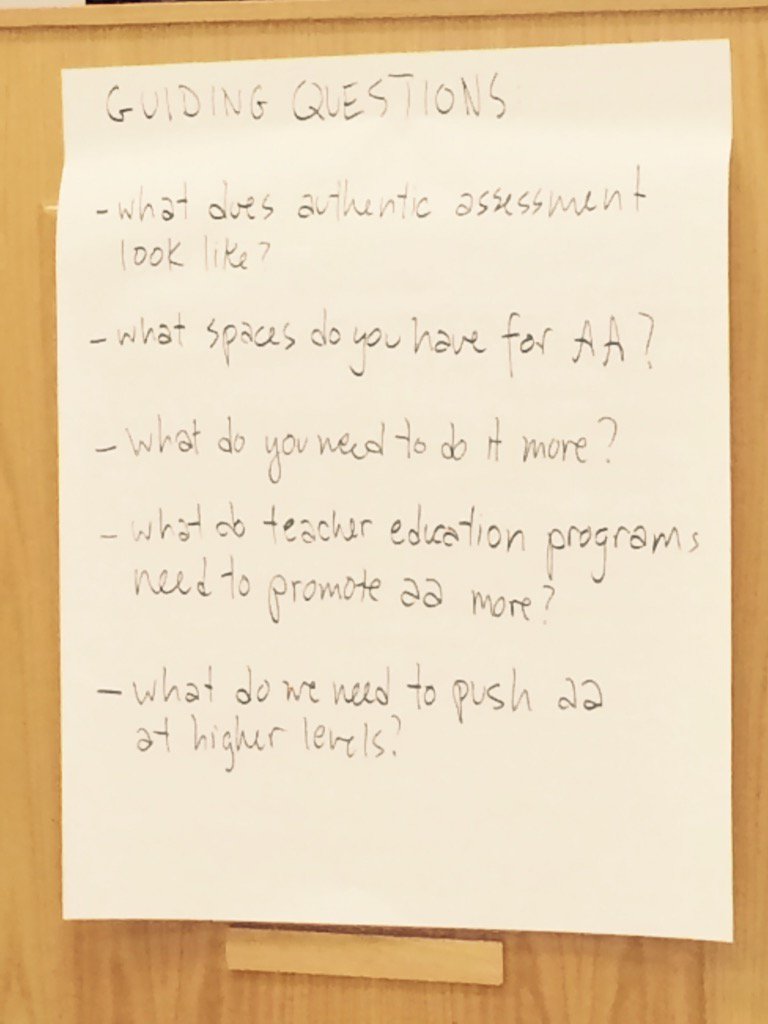 GUIDING QUESTIONS
- what does authentic assessment
look like?
- what spaces do you have for AA?
- What do you need to do it more?
- what do teacher education programs
need to promote aa more?
- what do we need to push aa
at higher levels?